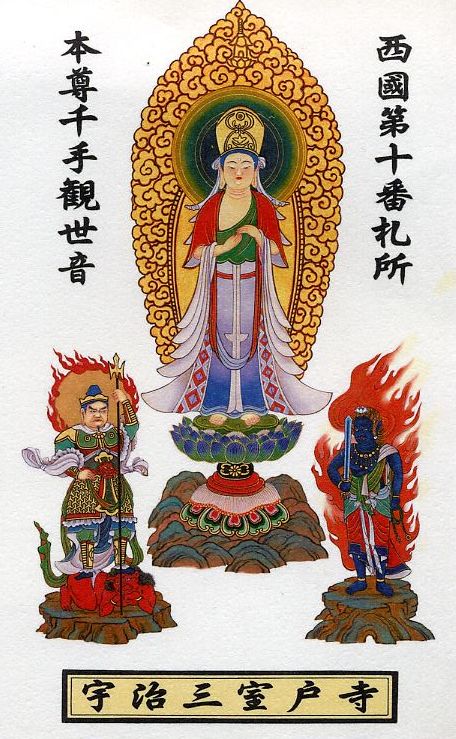 西國第十番札所
本尊千手觀世音
宇治三室戸寺